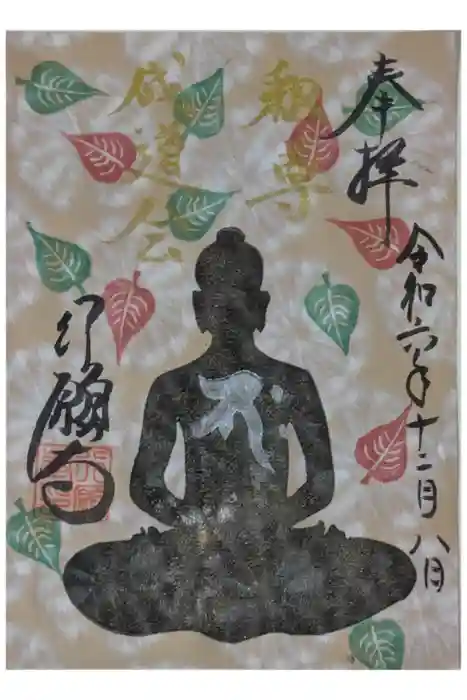 奉拝
令和六年十二月八日
釈尊
成道会
行願寺